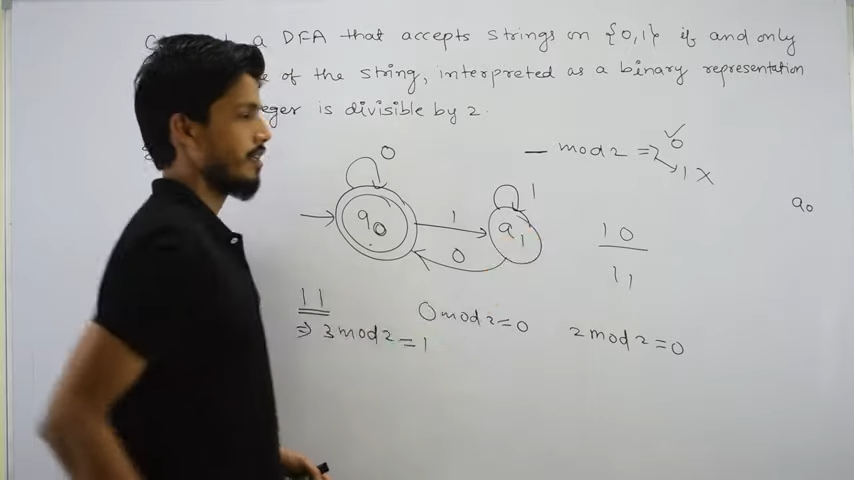 a DFA that accepts strings on {0,1} if and only
of the string, interpreted as a binary representation
is divisible by 2.
0
— mod 2 =>
0 ✓
1 X
1
q0
1
q1
q0
0
1 0
1 1
1 1
0 mod 2 = 0
=> 3 mod 2 = 1
2 mod 2 = 0